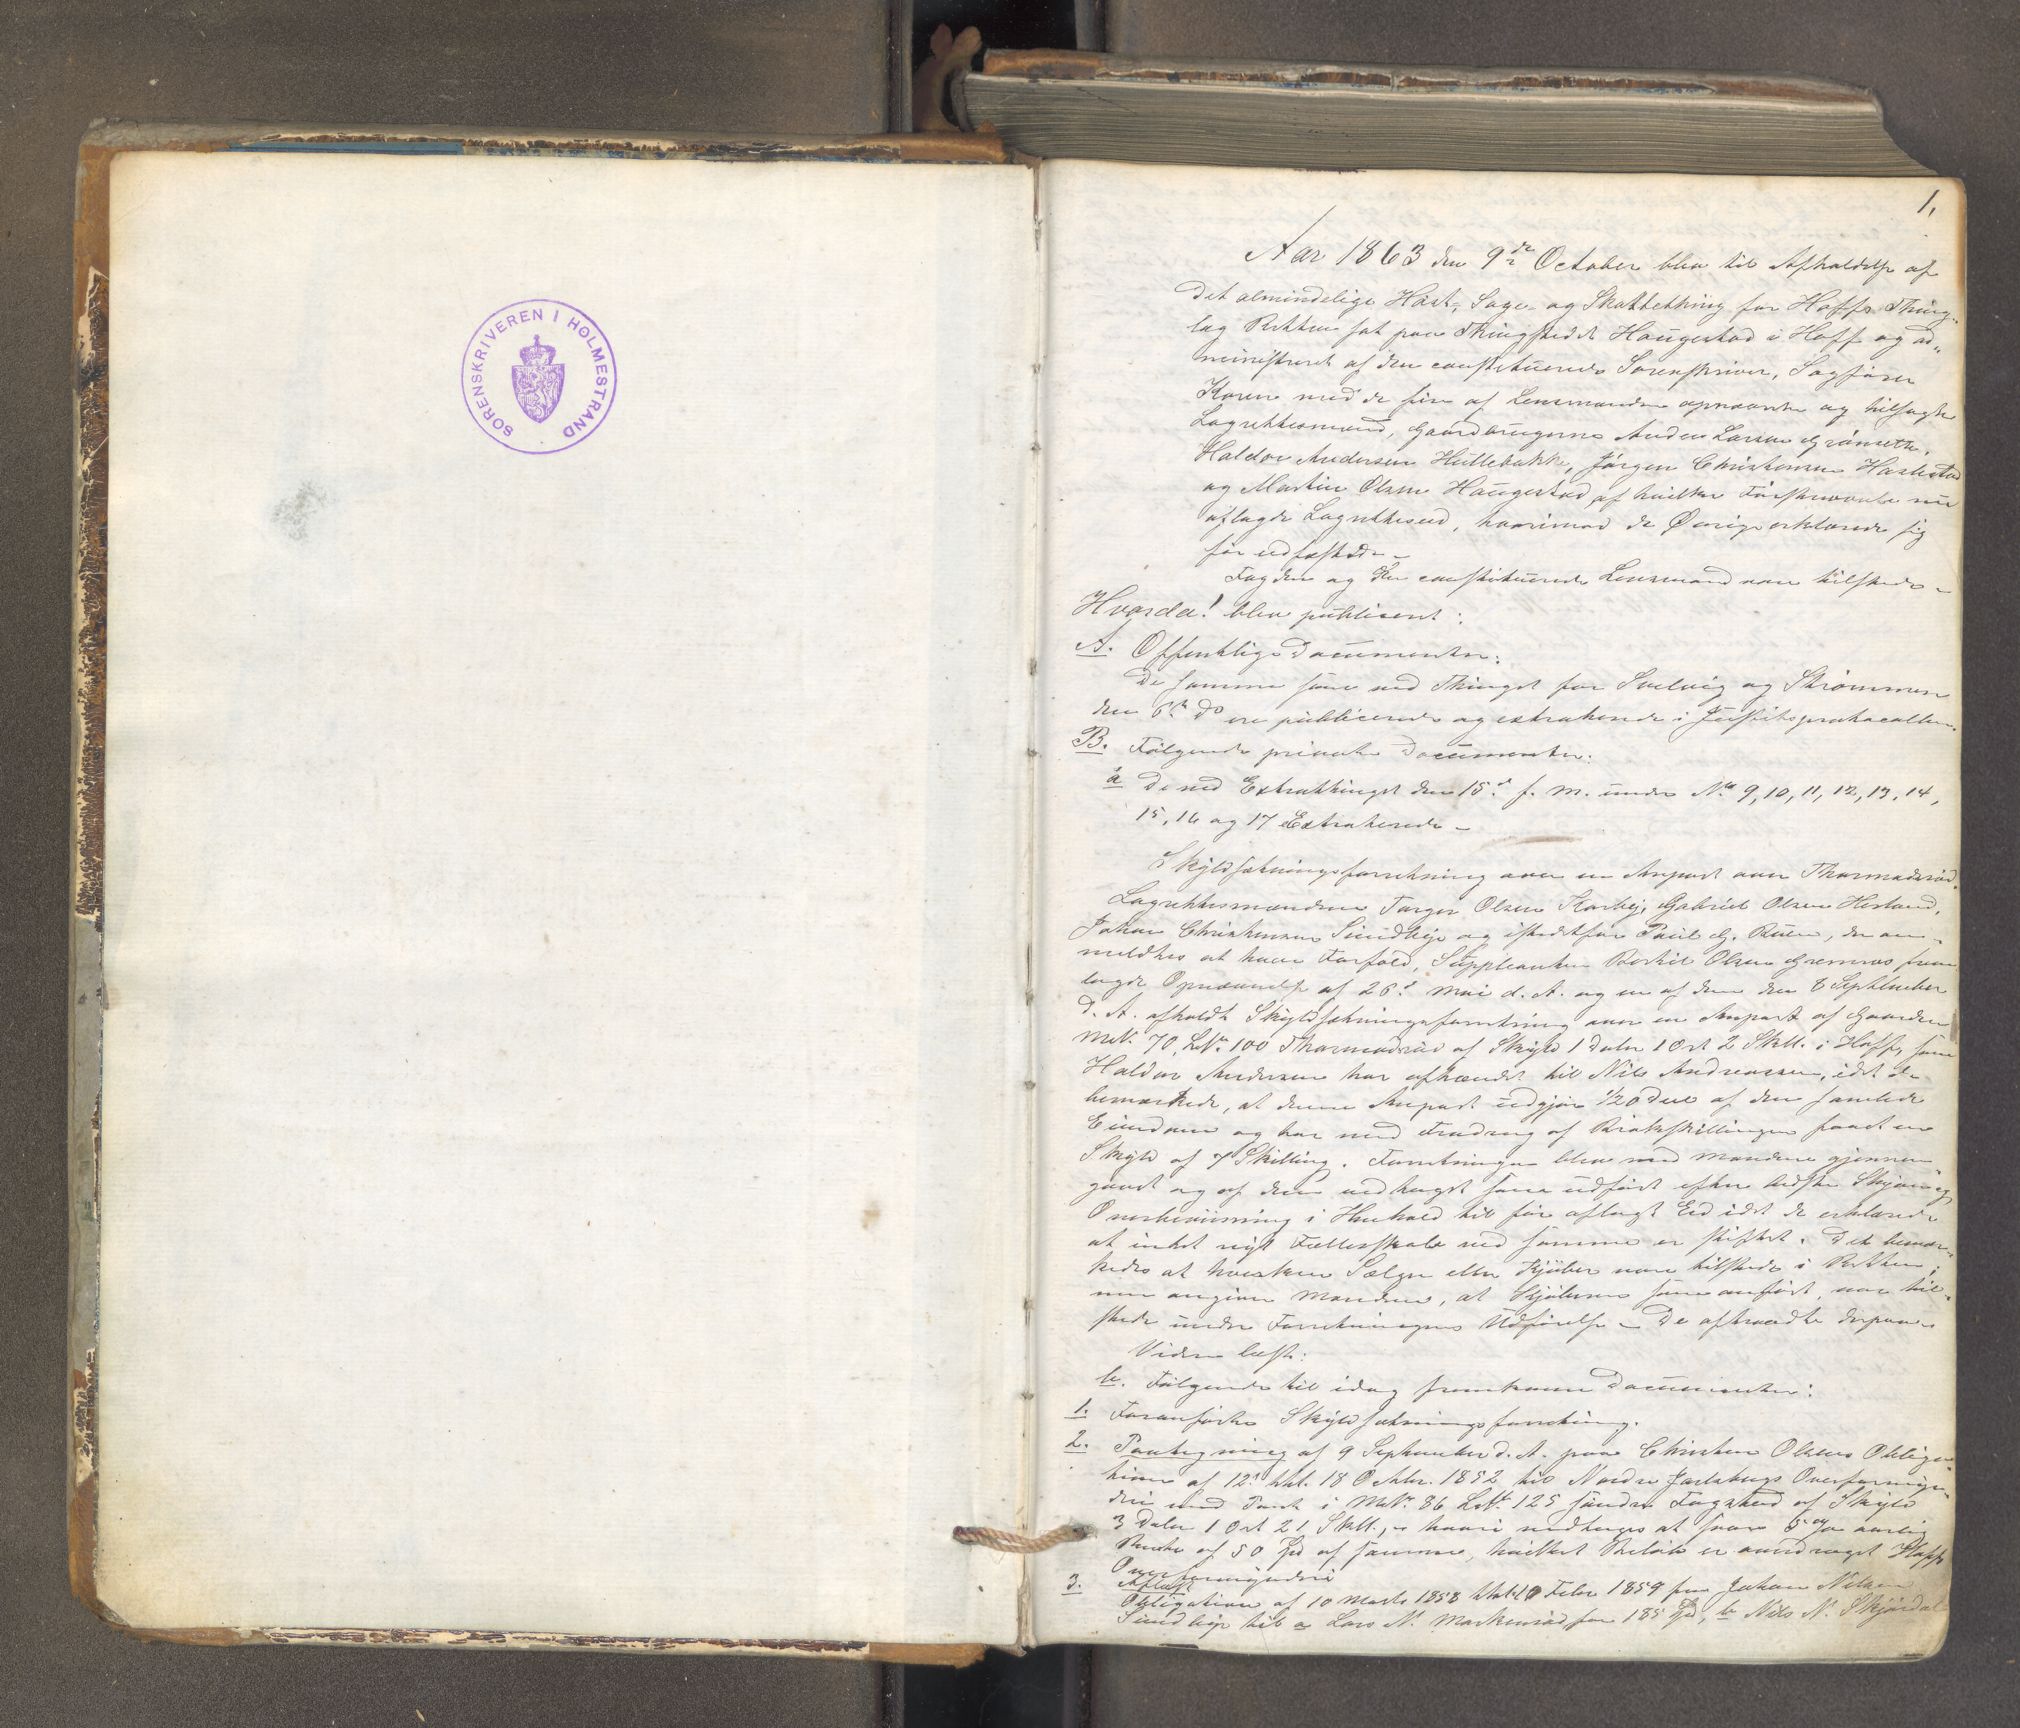 SORENSKRIVEREN I HOLMESTRAND
1.
Aar 1863 den 9de October blev til Afholdelse af
det almindelige Høst-, Sage- og Skattething for Hoffs Thing-
lag Retten sat paa Thingstedet Haugestad i Hoff og ad-
ministreret af den constituerede Sorenskriver, Sagfører
med de fire af Lensmanden opnævnte og tilsagte
Lagrettesmænd, Gaardbrugerne Anders Larsen Grønsett,
Haldor Andersen Hillebakke, Jørgen Christensen Haslestad
og Martin Olsen Haugestad, af hvilke Førstnævnte nu
aflagde Lagretteseed, hvorimod de Øvrige erklærede sig
før edfæstede.
Fogden og den constituerede Lensmand var tilstede.
Hvorda! blev publiceret:
A. Offentlige Documenter:
De samme som ved Thinget for Svelvig og Strømmen
den 6te do ere publicerede og extraherede i Justitsprotocollen.
B. Følgende private Documenter:
a De ved Extrathinget den 15de f. M. under No 9, 10, 11, 12, 13, 14,
15, 16 og 17 Extraherede.
Skyldsætningsforretning over en Anpart over Thormodsrød.
Lagrettesmændene Torger Olsen Gabriel Olsen
Johan Christensen Sundbye og istedetfor Paul G. Ruen, der an-
meldtes at have Forfald, Suppleanten Olsen frem-
lagde Opnævnelse af 26de Mai d. A. og en af dem den 8 September
d. A. afholdt Skyldsætningsforretning over en Anpart af Gaarden
MNo 70, LNo 100 Thormodsrød af Skyld 1 Daler 1 Ort 2 Skill. i Hoff, som
Haldor Andersen har afhændet til Nils Andreassen, idet de
bemærkede, at denne Anpart udgjør 1/20 Deel af den samlede
Eiendom og har med Fradrag af Brøkskillingen faaet en
Skyld af 7 Skilling. Forretningen blev med Mændene gjennem-
gaaet og af dem vedtaget som udført efter bedste Skjøn og
Overbeviisning i Henhold til før aflagt Eed idet de erklærede
at intet nyt Fællesskab ved samme er stiftet. Det bemær-
kedes at hverken Sælger eller Kjøber var tilstede i Retten;
men angiver Mændene, at Kjøberen som anført, var til-
stede under Forretningens Udførelse. De aftraadte derpaa.
Videre læst:
b. Følgende til idag fremkomne Documenter:
1. Foranførte Skyldsætningsforretning.
2. Paategning af 9 September d. A. paa Christen Olsens Obliga-
tion af 12te thl. 18 Octbr. 1852 til Nordre Jarlsbergs Overformyn-
deri med Pant i MNo 86 LNo 125 søndre Fogstad af Skyld
3 Daler 1 Ort 21 Skill., hvori vedtages at svare 5 % aarlig
Rente af 50 Spd af samme, hvilket Beløb er overdraget Hoffs
Overformynderi
3. Aflæst
Obligation af 10 Marts 1858 thl. 10 Febr 1859 fra Johan Nilsen
Sundbye til a Lars N. for 185 Spd, b Nils N. Skjørdal